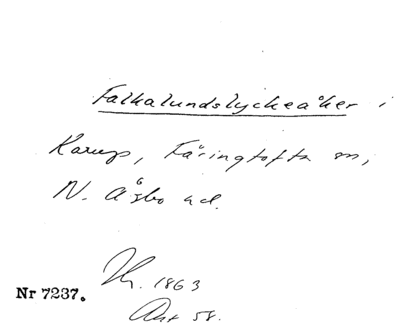 Falkalundslyckeåker i
Karup, Färingtofta sn,
N. Åsbo hd.
Nr 7237.
1863
Akt 58.